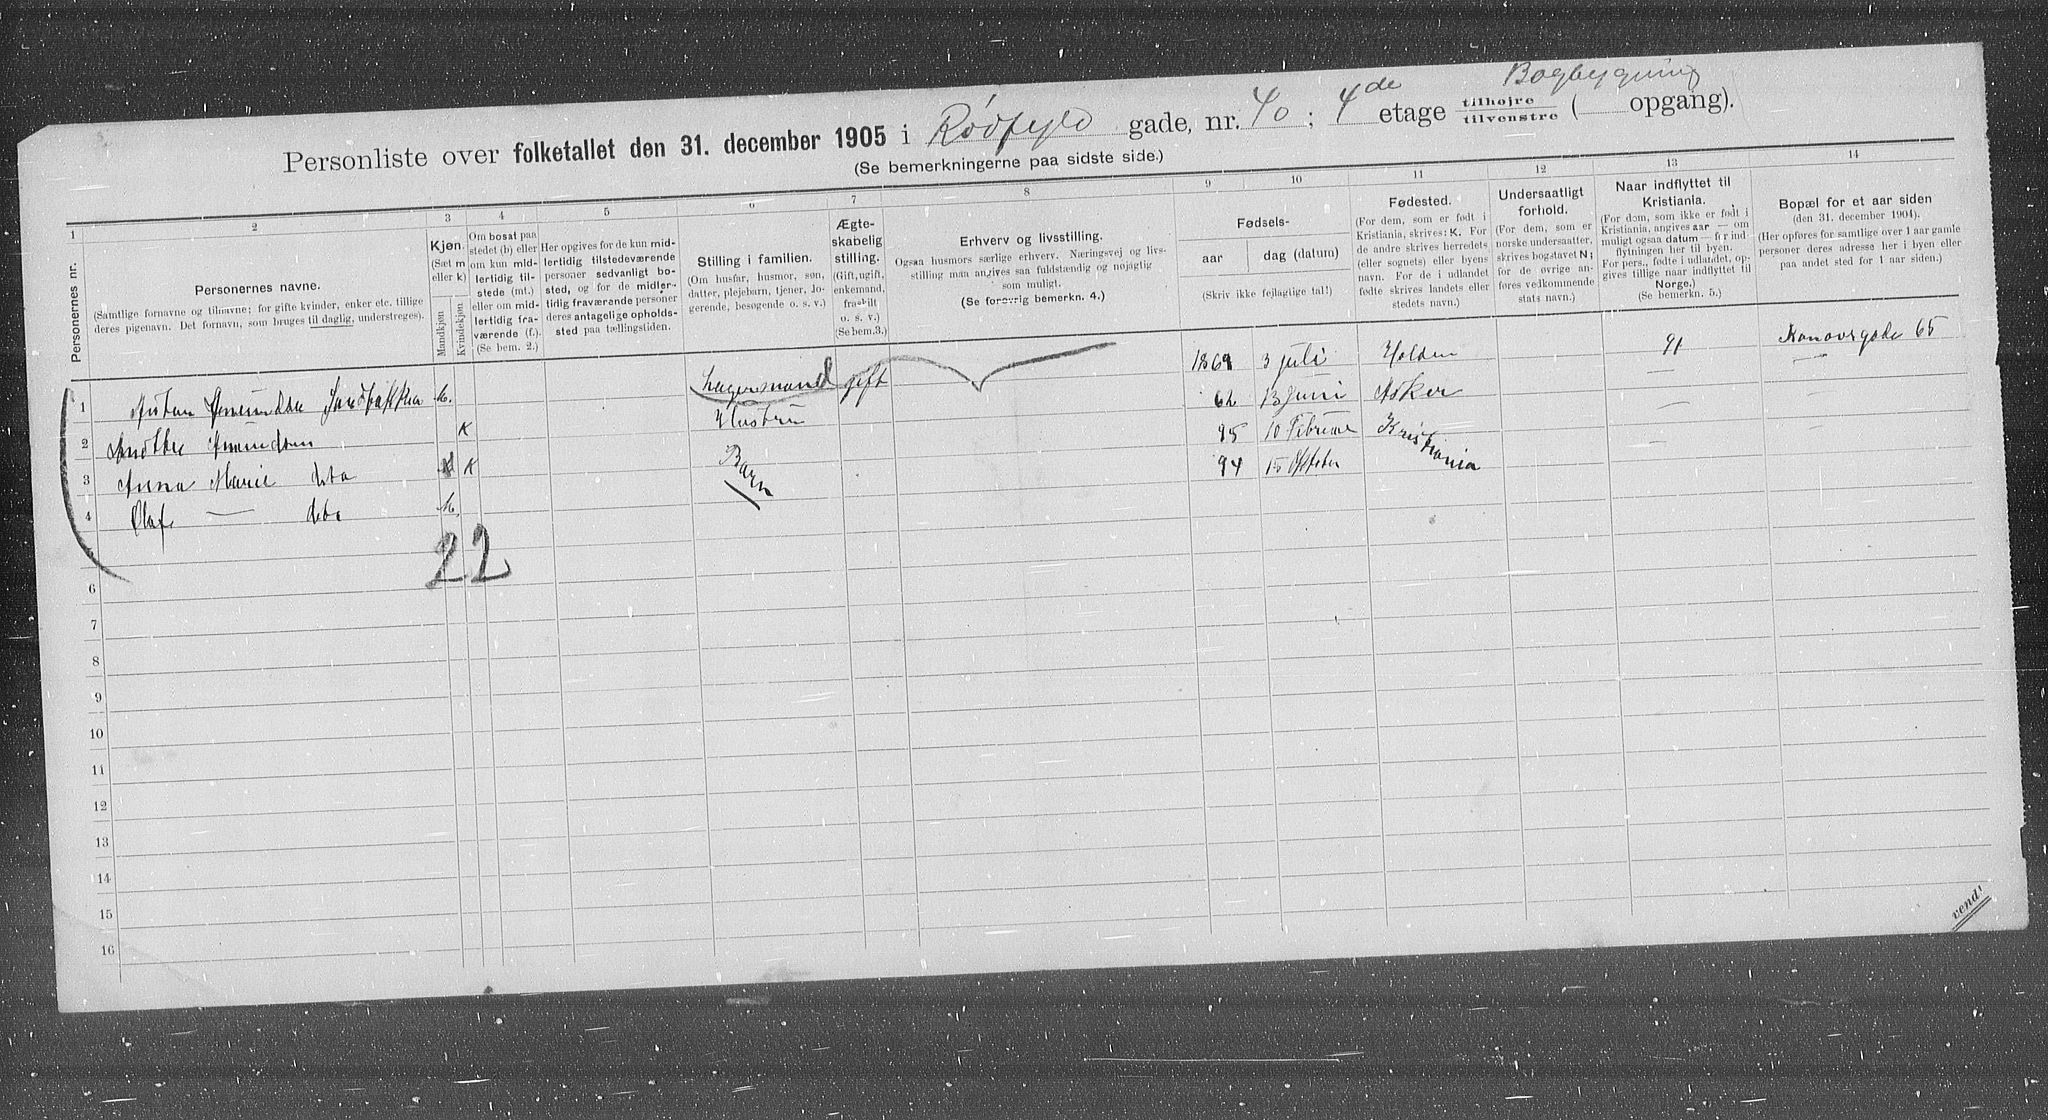 Bogbygning
Personliste over folketallet den 31. december 1905 i Rødfyld gade, nr. 40; 4de etage tilhøjre tilvenstre ( opgang).
(Se bemerkningerne paa sidste side.)
1 2 3 4 5 6 7 8 9 10 11 12 13 14
Personernes nr.
Personernes navne.
(Samtlige fornavne og tilnavne; for gifte kvinder, enker etc. tillige
deres pigenavn. Det fornavn, som bruges til daglig, understreges).
Kjøn.
(Sæt m
eller k)
Mandkjøn
Kvindekjøn
Om bosat paa
stedet (b) eller
om kun mid-
lertidig til-
stede (mt.)
eller om mid-
lertidig fra-
værende (f.).
(Se bem. 2.)
Her opgives for de kun mid-
lertidig tilstedeværende
personer sedvanligt bo-
sted, og for de midler-
tidig fraværende personer
deres antagelige opholds-
sted paa tællingstiden.
Stilling i familien.
(Om husfar, husmor, søn,
datter, plejebarn, tjener, lo-
gerende, besøgende o. s. v.)
Ægte-
skabelig
stilling.
(Gift, ugift,
enkemand,
fraskilt
o. s. v.)
(Se bem.3.)
Erhverv og livsstilling.
Ogsaa husmors særlige erhverv. Næringsvej og livs-
stilling maa angives saa fuldstændig og nøjagtig
som muligt.
(Se forøvrig bemerkn. 4.)
Fødsels-
aar dag (datum)
(Skriv ikke fejlagtige tal!)
Fødested.
(For dem, som er født i
Kristiania, skrives: K. For
de andre skrives herredets
(eller sognets) eller byens
navn. For de i udlandet
fødte skrives landets eller
stedets navn.)
Undersaatligt
forhold.
(For dem, som er
norske undersaatter,
skrives bogstavet N;
for de øvrige an-
føres vedkommende
stats navn.)
Naar indflyttet til
Kristiania.
(For dem, som ikke er født i
Kristiania, angives aar — om
muligt ogsaa datum — for ind-
flytningen her til byen.
For pers., fødte i udlandet, op-
gives tillige naar indflyttet til
Norge.)
(Se bemerkn. 5.)
Bopæl for et aar siden
(den 31. december 1904).
(Her opføres for samtlige over 1 aar gamle
personer deres adresse her i byen eller
paa andet sted for 1 aar siden.)
1 Anton Amundsen m. Lagermand gift 3 juli Holden 91 65
2 Amundsen K Hustru 62 13 juni Asker — —
3 Anna Marie dto K 95 10 Februar Kristiania — —
4 Olaf — dto m. Barn 94 15 Oktober
5
22
6
7
8
9
10
11
12
13
14
15
16
vend!